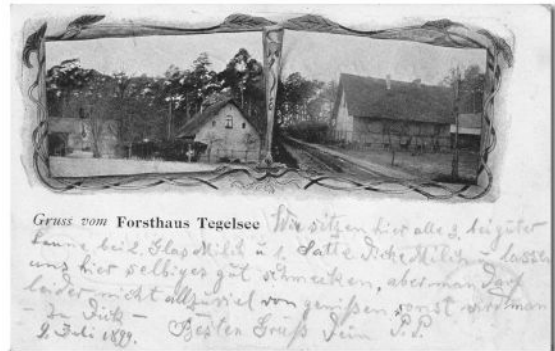 Gruss vom Forsthaus Tegelsee Wir sitzen hier alle 3, bei guter
Laune bei 2. Glas Milch u 1. Satte Dicke Milch u lassen
uns hier selbiges gut schmecken, aber man darf
leider nicht allzuviel von genißen, sonst wird man
– zu Dick – Besten Gruß Dein P.P.
9. Juli 1899.